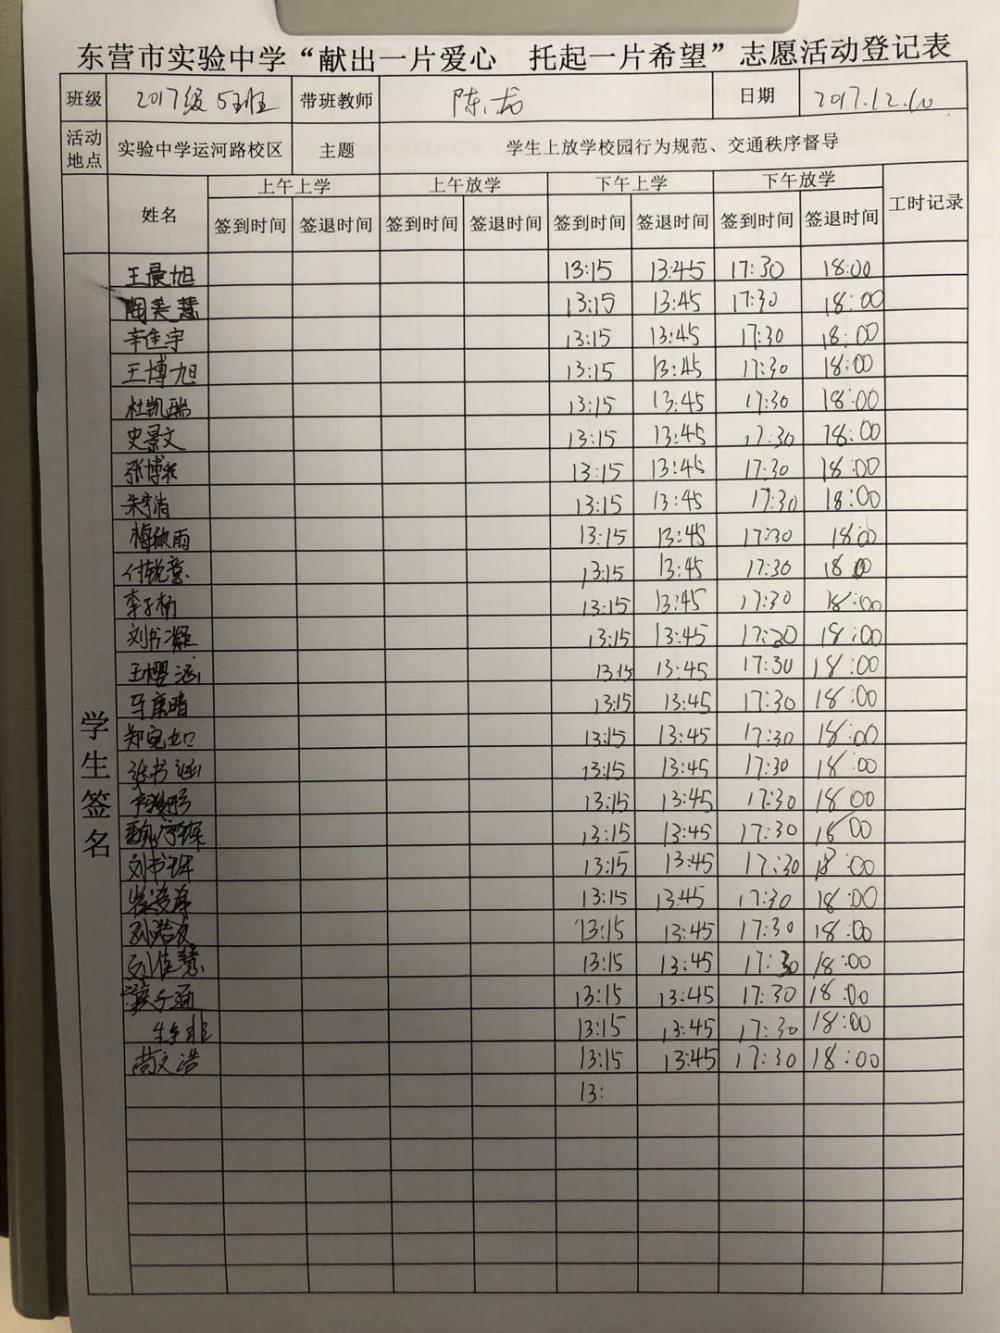 东营市实验中学“献出一片爱心 托起一片希望”志愿活动登记表
班级 2017级 5班 带班教师 陈龙 日期 2017.12.10
活动地点 实验中学运河路校区 主题 学生上放学校园行为规范、交通秩序督导
姓名 上午上学 上午放学 下午上学 下午放学 工时记录
签到时间 签退时间 签到时间 签退时间 签到时间 签退时间 签到时间 签退时间
学生签名
王晨旭 13:15 13:45 17:30 18:00
陶美慧 13:15 13:45 17:30 18:00
辛佳宇 13:15 13:45 17:30 18:00
王博旭 13:15 13:45 17:30 18:00
杜凯瑞 13:15 13:45 17:30 18:00
史景文 13:15 13:45 17:30 18:00
张博 13:15 13:45 17:30 18:00
朱 13:15 13:45 17:30 18:00
梅欣雨 13:15 13:45 17:30 18:00
付锐意 13:15 13:45 17:30 18:00
李子 13:15 13:45 17:30 18:00
刘书凝 13:15 13:45 17:20 18:00
王樱涵 13:15 13:45 17:30 18:00
马康晴 13:15 13:45 17:30 18:00
郑宛如 13:15 13:45 17:30 18:00
张书涵 13:15 13:45 17:30 18:00
13:15 13:45 17:30 18 00
魏 13:15 13:45 17:30 18 00
刘书 13:15 13:45 17:30 18:00
13:15 13:45 17:30 18:00
13:15 13:45 17:30 18:00
刘佳慧 13:15 13:45 17:30 18:00
13:15 13:45 17:30 18:00
13:15 13:45 17:30 18:00
尚文浩 13:15 13:45 17:30 18:00
13: